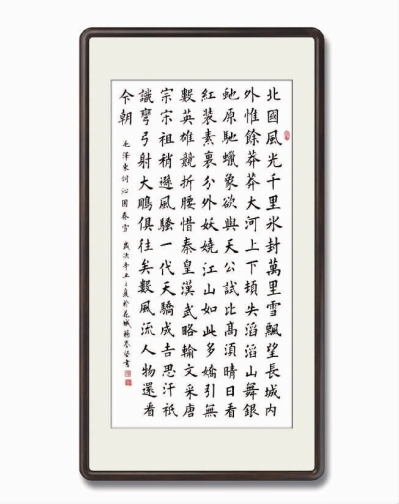 北國風光千里冰封萬里雪飄望長城内
外惟餘莽莽大河上下頓失滔滔山舞銀
蛇原馳蠟象欲與天公試比高須晴日看
紅裝素裹分外妖嬈江山如此多嬌引無
數英雄競折腰惜秦皇漢武略輸文采唐
宗宋祖稍遜風騷一代天驕成吉思汗祇
識彎弓射大鵰俱往矣數風流人物還看
今朝
毛澤東詞沁園春雪 歲次辛丑之夏於花城楊書